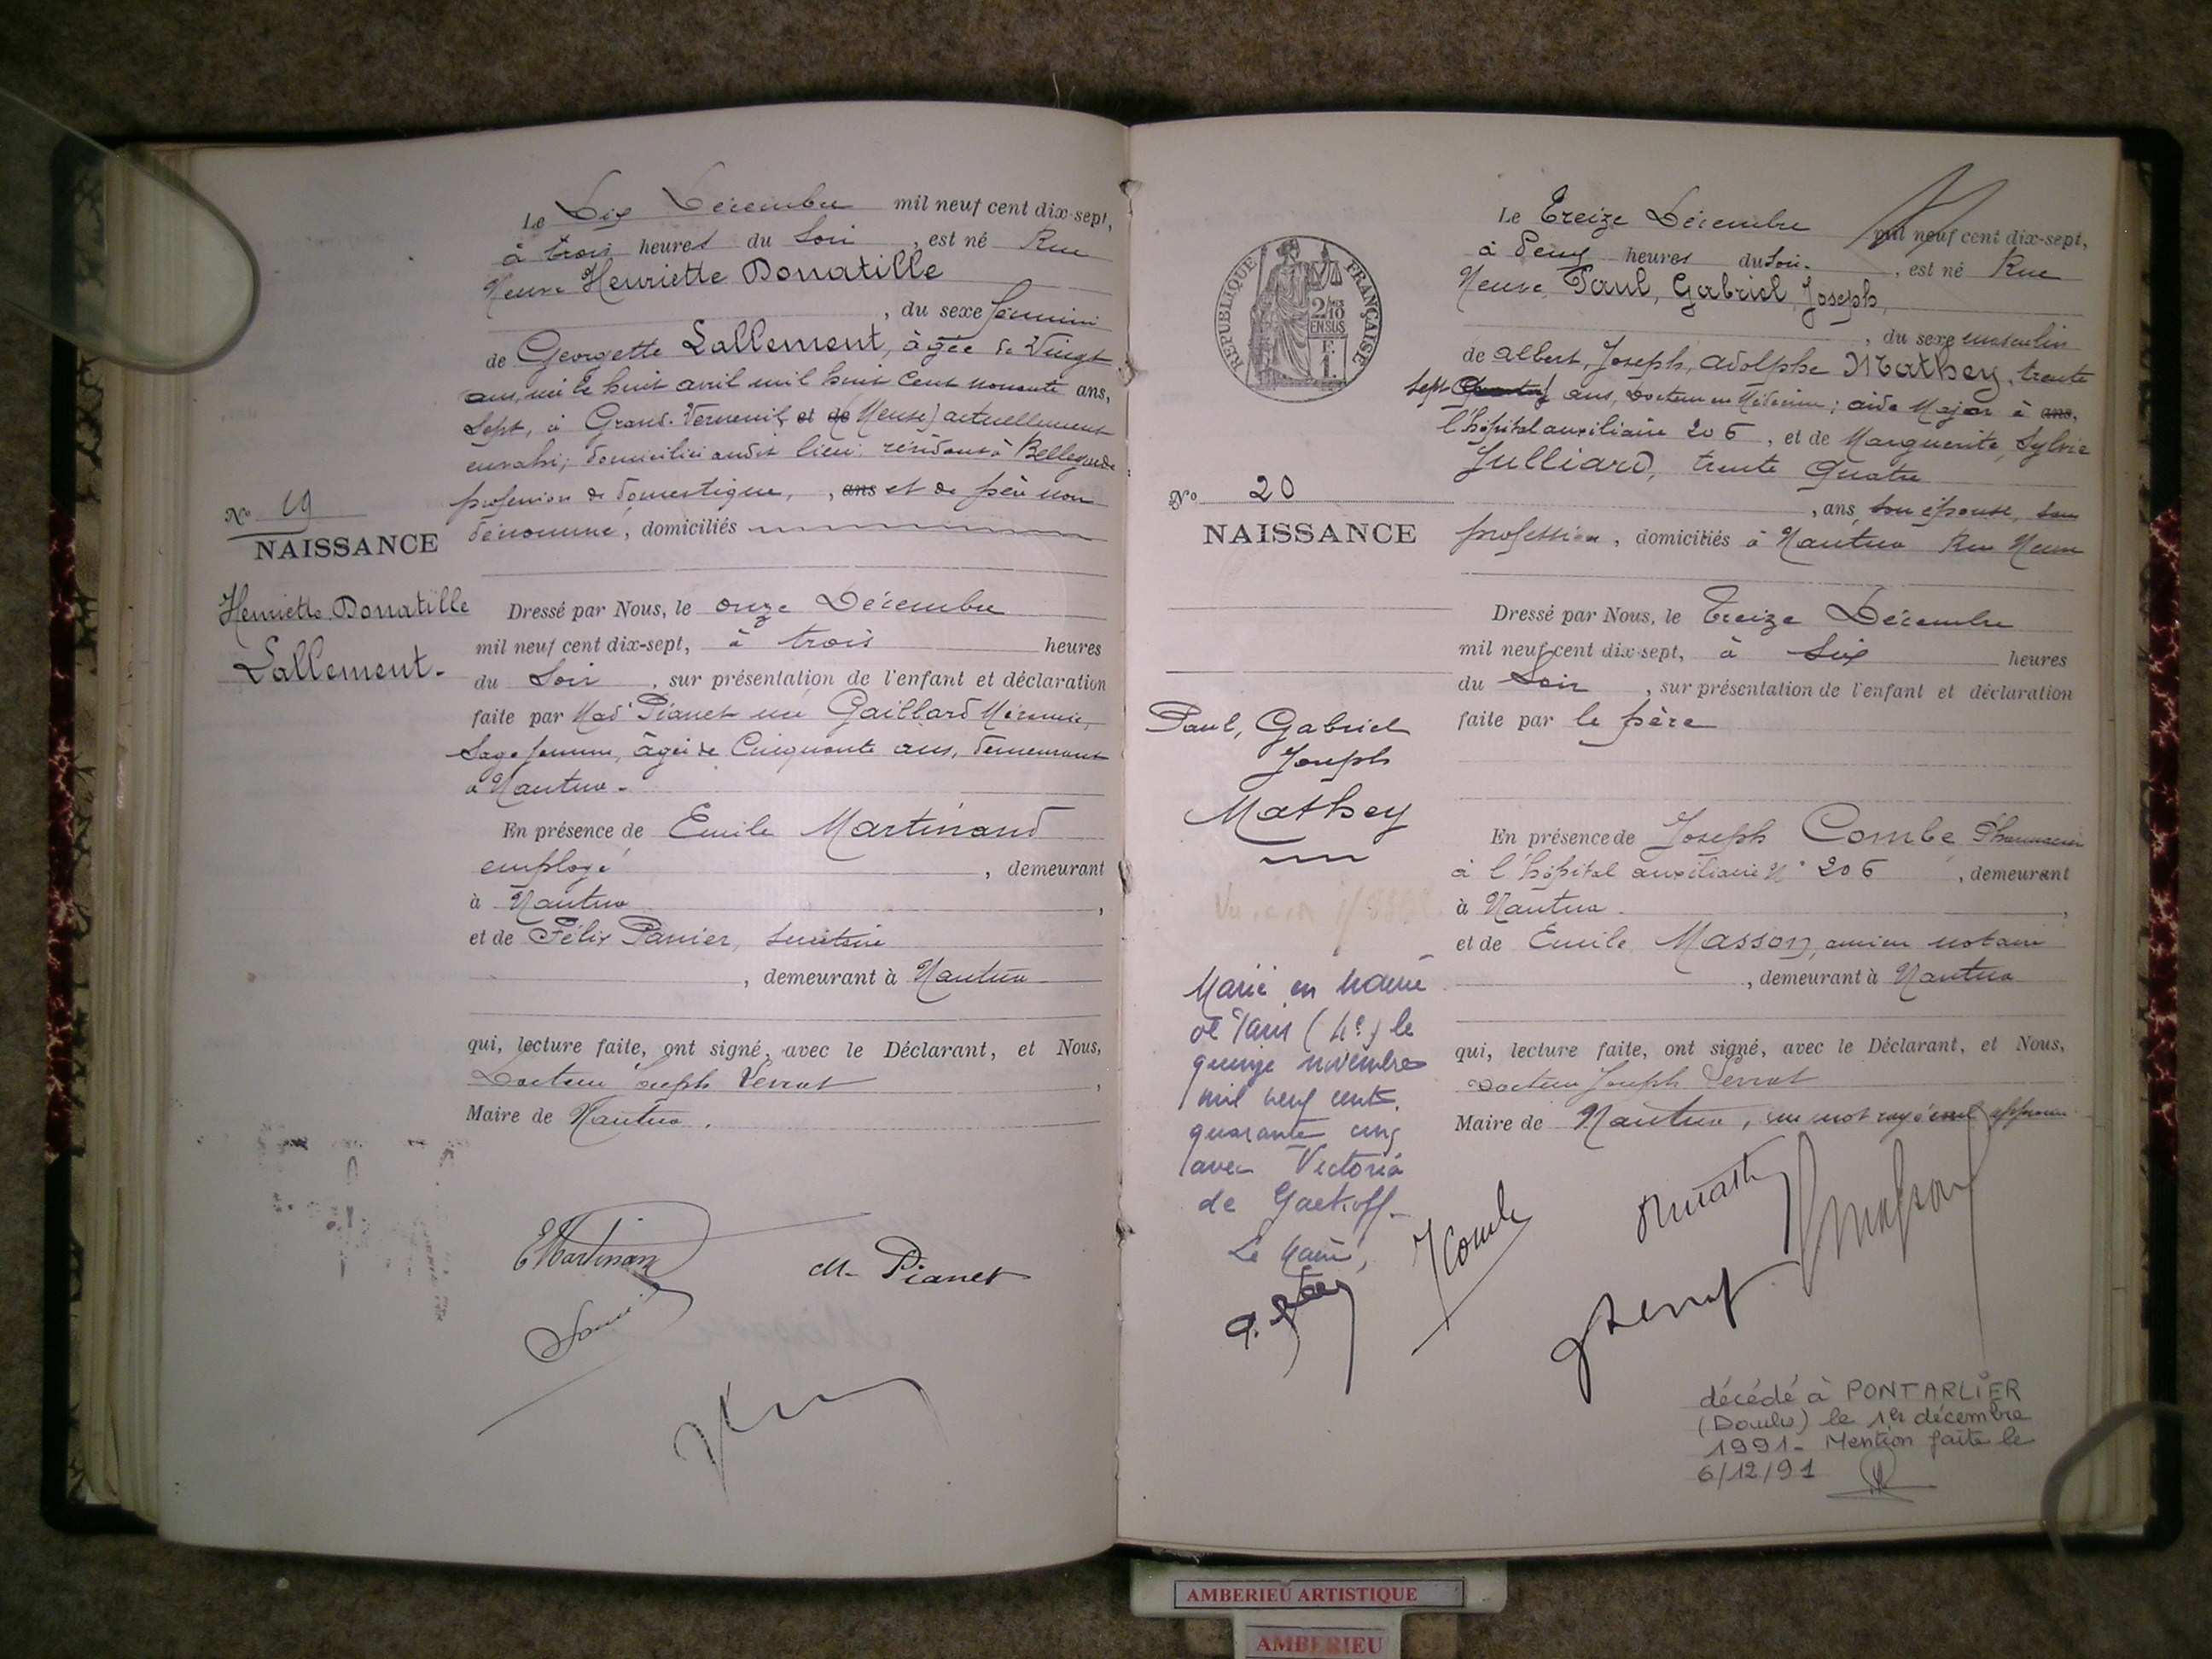 Le Dix Décembre mil neuf cent dix-sept,
à trois heures du Soir, est né Rue
Neuve Henriette Donatille
, du sexe féminin
de Georgette Lallement, âgée de Vingt
ans, née le huit avril mil huit cent nonante ans,
Sept, à Grand-Verneuil, et de Meuse) actuellement
envahi; domiciliée audit lieu; résidant à Bellegarde
profession de domestique, , ans et de père non
dénommé, domiciliés
No 19
NAISSANCE
Henriette Donatille
Lallement.
Dressé par Nous, le onze Décembre
mil neuf cent dix-sept, à trois heures
du Soir, sur présentation de l'enfant et déclaration
faite par Mad Pianet née Gaillard
Sage femme, âgée de Cinquante ans, demeurant
à Nantua.
En présence de Emile Martinand
employé, demeurant
à Nantua,
et de Félix Panier, secrétaire
, demeurant à Nantua
qui, lecture faite, ont signé, avec le Déclarant, et Nous,
Docteur Joseph Perrat,
Maire de Nantua.
EMartinand
M. Pianet
Le Treize Décembre mil neuf cent dix-sept,
à Deux heures du Soir, est né Rue
Neuve Paul, Gabriel, Joseph,
, du sexe masculin
de Albert, Joseph, Adolphe Mathey, trente
sept ans, Docteur en Médecine; aide Major à ans,
l'hôpital auxiliaire 206, et de Marguerite, Sylvie
Julliard, trente Quatre
, ans, son épouse, sans
profession, domiciliés à Nantua Rue Neuve
REPUBLIQUE FRANÇAISE
2/10 EN SUS
No 20
NAISSANCE
Paul, Gabriel
Joseph
Mathey
Dressé par Nous, le Treize Décembre
mil neuf cent dix-sept, à Six heures
du Soir, sur présentation de l'enfant et déclaration
faite par le père
En présence de Joseph Combe Pharmacien
à l'hôpital auxiliaire N° 206, demeurant
à Nantua.,
et de Emile Masson, ancien notaire
, demeurant à Nantua
qui, lecture faite, ont signé, avec le Déclarant, et Nous,
Docteur Joseph Perrat
Maire de Nantua, un mot rayé nul approuvé
Marié en mairie
de Paris (4e) le
quinze novembre
mil neuf cent
quarante cinq
avec Victoria
de
Le Maire,
JCombe
décédé à PONTARLIER
(Doubs) le 1er décembre
1991- Mention faite le
6/12/91
AMBERIEU ARTISTIQUE
AMBERIEU